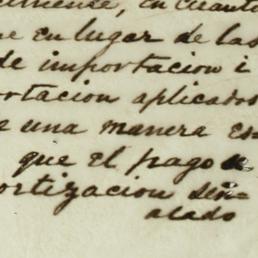 en cuanto
e en lugar de las
de importacion i
rtacion aplicados
e una manera es=
que el pago
ortizacion señ=
alado